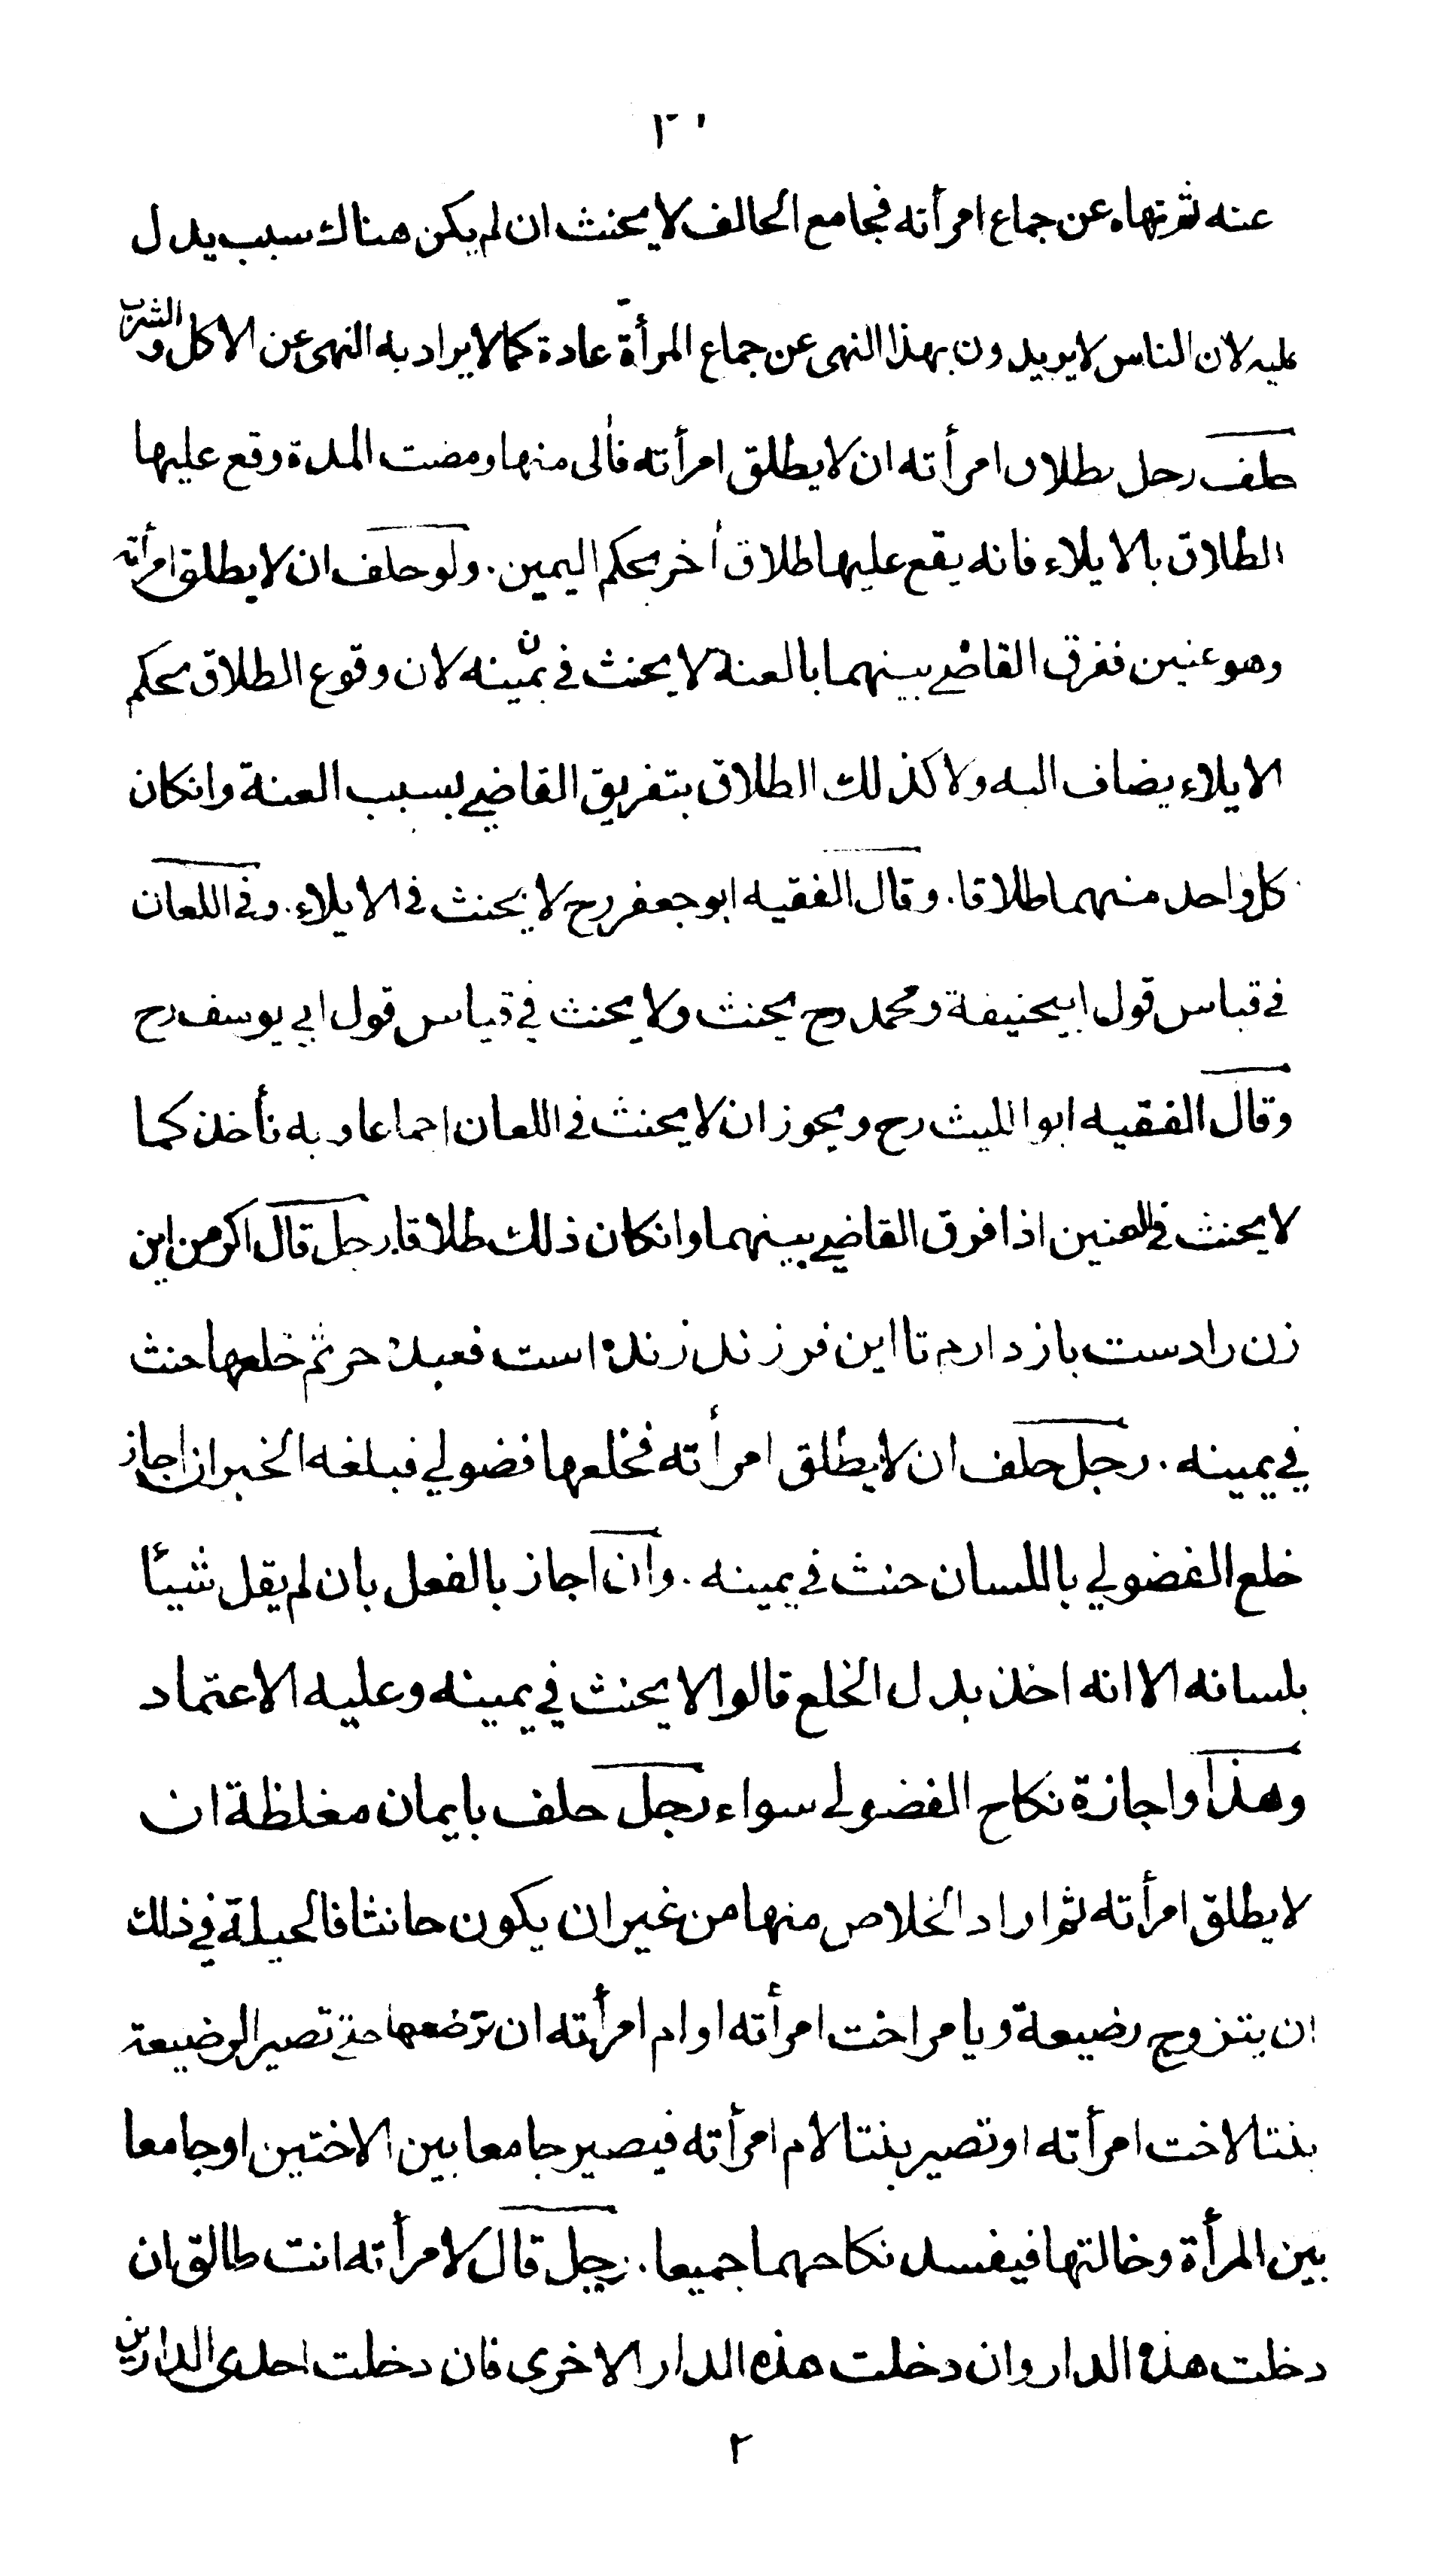 عنه ثم نهاه عن جماع امرأته فجامع الحالف لا يحنث ان لم يكن هناك سبب يدل
عليه لان الناس لا يريدون بهذا النهى عن جماع المرأة عادة كما لا يراد به النهى عن الاكل والشرب
حلف رجل بطلاق امرأته ان لا يطلق امرأته فآلى منها ومضت المدة وقع عليها
الطلاق بالايلاء فانه يقع عليها طلاق أخر بحكم اليمين . ولو حلف ان لا يطلق امرأته
وهو عنين ففرق القاضي بينهما بالعنة لا يحنث في يمينه لان وقوع الطلاق بحكم
الايلاء يضاف اليه ولا كذلك الطلاق بتفريق القاضي بسبب العنة وانكان
كل واحد منهما طلاقا . وقال الفقيه ابو جعفر رح لا يحنث في الايلاء . وفي اللعان
في قياس قول ابيحنيفة ومحمد رح يحنث ولا يحنث في قياس قول ابي يوسف رح
وقال الفقيه ابو الليث رح ويجوز ان لا يحنث في اللعان اجماعا وبه نأخذ كما
لا يحنث في العنين اذا فرق القاضي بينهما وانكان ذلك طلاقا . رجل قال اكر من اين
زن را دست باز دارم تا اين فرزند زنده است فعبده حر ثم خلعها حنث
في يمينه . رجل حلف ان لا يطلق امرأته فخلعها فضولي فبلغه الخبر ان اجاز
خلع الفضولي باللسان حنث في يمينه . وان اجاز بالفعل بان لم يقل شيئا
بلسانه الا انه اخذ بدل الخلع قالوا لا يحنث في يمينه وعليه الاعتماد
وهذا واجازة نكاح الفضولي سواء رجل حلف بايمان مغلظة ان
لا يطلق امرأته ثم اراد الخلاص منها من غير ان يكون حانثا فالحيلة في ذلك
ان يتزوج رضيعة ويامر اخت امرأته او ام امرأته ان ترضعها حتى تصير الرضيعة
بنتا لاخت امرأته او تصير بنتا لام امرأته فيصير جامعا بين الاختين او جامعا
بين المرأة وخالتها فيفسد نكاحهما جميعا . رجل قال لامرأته انت طالق ان
دخلت هذه الدار وان دخلت هذه الدار الاخرى فان دخلت احدى الدارين
٢